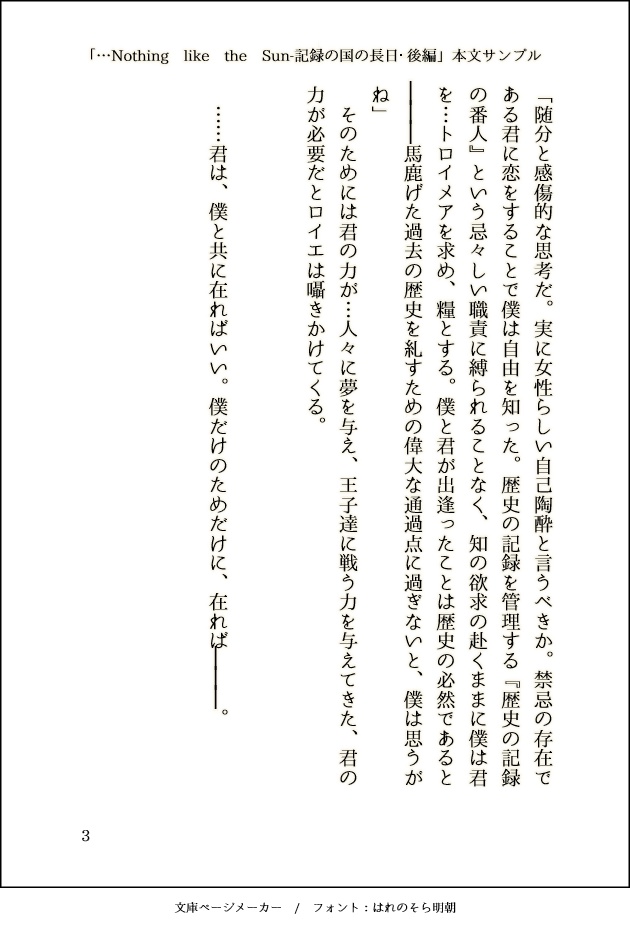 「…Nothing like the Sun-記録の国の長日・後編」本文サンプル
「随分と感傷的な思考だ。実に女性らしい自己陶酔と言うべきか。禁忌の存在で
ある君に恋をすることで僕は自由を知った。歴史の記録を管理する『歴史の記録
の番人』という忌々しい職責に縛られることなく、知の欲求の赴くままに僕は君
を…トロイメアを求め、糧とする。僕と君が出逢ったことは歴史の必然であると
――馬鹿げた過去の歴史を糺すための偉大な通過点に過ぎないと、僕は思うが
ね」
そのためには君の力が…人々に夢を与え、王子達に戦う力を与えてきた、君の
力が必要だとロイエは囁きかけてくる。
……君は、僕と共に在ればいい。僕だけのためだけに、在れば――。
3
文庫ページメーカー / フォント：はれのそら明朝